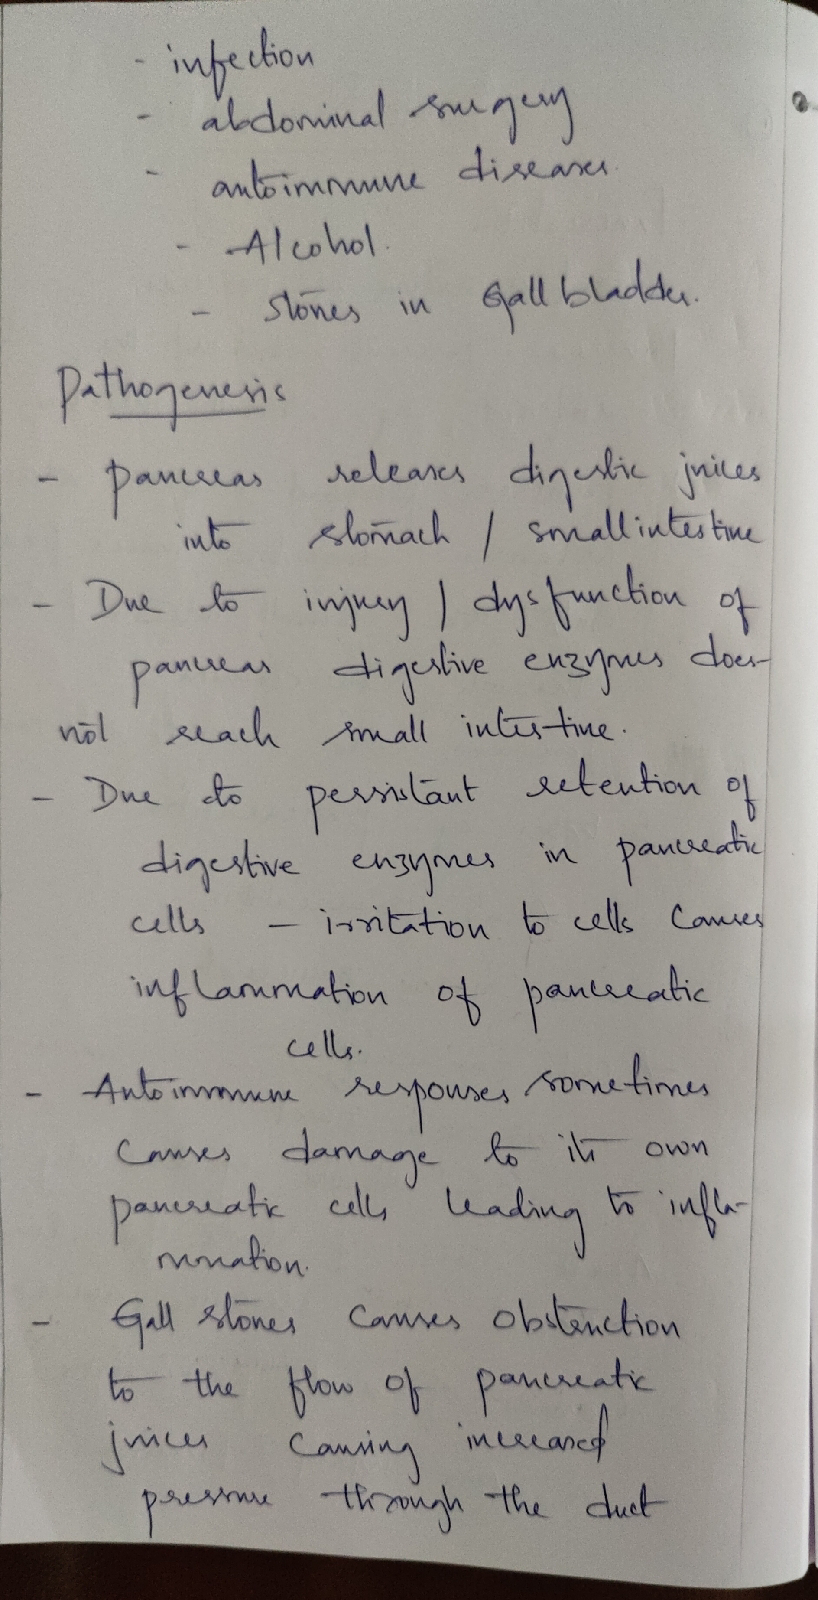 - infection
- abdominal surgery
- autoimmune diseases.
- Alcohol.
- Stones in Gall bladder.
Pathogenesis
- pancreas releases digestic juices
into stomach / small intestine
- Due to injury / dysfunction of
pancreas digestive enzymes does-
not reach small intestine.
- Due to persistant retention of
digestive enzymes in pancreatic
cells - irritation to cells causes
inflammation of pancreatic
cells.
- Autoimmune responses sometimes
causes damage to its own
pancreatic cells leading to infla-
mmation.
- Gall stones causes obstruction
to the flow of pancreatic
juices causing increased
pressure through the duct